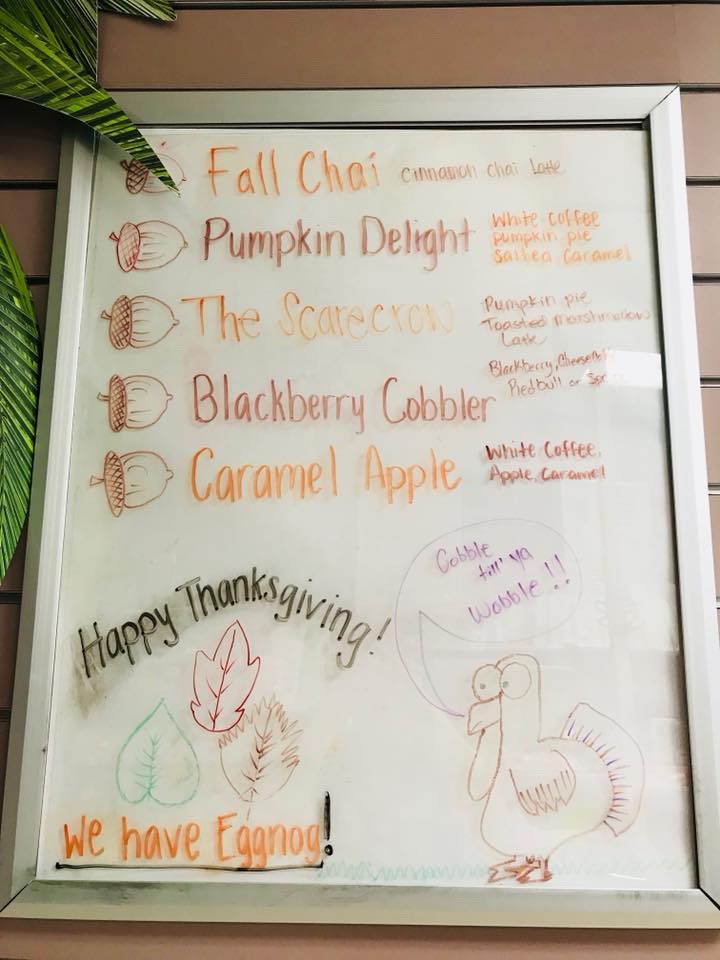 Fall Chai cinnamon chai Latte
Pumpkin Delight
White coffee
pumpkin pie
salted Caramel
The Scarecrow
Pumpkin pie
Toasted Marshmallow
Latte
Blackberry Cobbler
Blackberry,
Redbull or
Caramel Apple
White Coffee,
Apple, Caramel
Happy Thanksgiving!
Gobble
till' ya
Wobble!!
We have Eggnog!